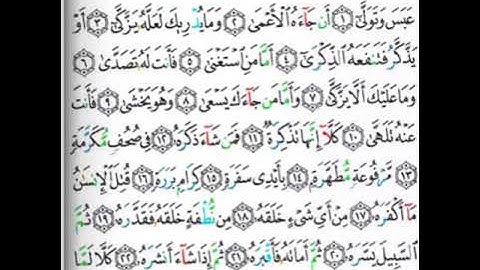 عَبَسَ وَتَوَلَّىٰٓ ١ أَن جَآءَهُ ٱلْأَعْمَىٰ ٢ وَمَا يُدْرِيكَ لَعَلَّهُۥ يَزَّكَّىٰٓ ٣ أَوْ
يَذَّكَّرُ فَتَنفَعَهُ ٱلذِّكْرَىٰٓ ٤ أَمَّا مَنِ ٱسْتَغْنَىٰ ٥ فَأَنتَ لَهُۥ تَصَدَّىٰ ٦
وَمَا عَلَيْكَ أَلَّا يَزَّكَّىٰ ٧ وَأَمَّا مَن جَآءَكَ يَسْعَىٰ ٨ وَهُوَ يَخْشَىٰ ٩ فَأَنتَ
عَنْهُ تَلَهَّىٰ ١٠ كَلَّآ إِنَّهَا تَذْكِرَةٌ ١١ فَمَن شَآءَ ذَكَرَهُۥ ١٢ فِى صُحُفٍ مُّكَرَّمَةٍ
١٣ مَّرْفُوعَةٍ مُّطَهَّرَةٍۭ ١٤ بِأَيْدِى سَفَرَةٍ ١٥ كِرَامٍۭ بَرَرَةٍ ١٦ قُتِلَ ٱلْإِنسَٰنُ
مَآ أَكْفَرَهُۥ ١٧ مِنْ أَىِّ شَىْءٍ خَلَقَهُۥ ١٨ مِن نُّطْفَةٍ خَلَقَهُۥ فَقَدَّرَهُۥ ١٩ ثُمَّ
ٱلسَّبِيلَ يَسَّرَهُۥ ٢٠ ثُمَّ أَمَاتَهُۥ فَأَقْبَرَهُۥ ٢١ ثُمَّ إِذَا شَآءَ أَنشَرَهُۥ ٢٢ كَلَّا لَمَّا